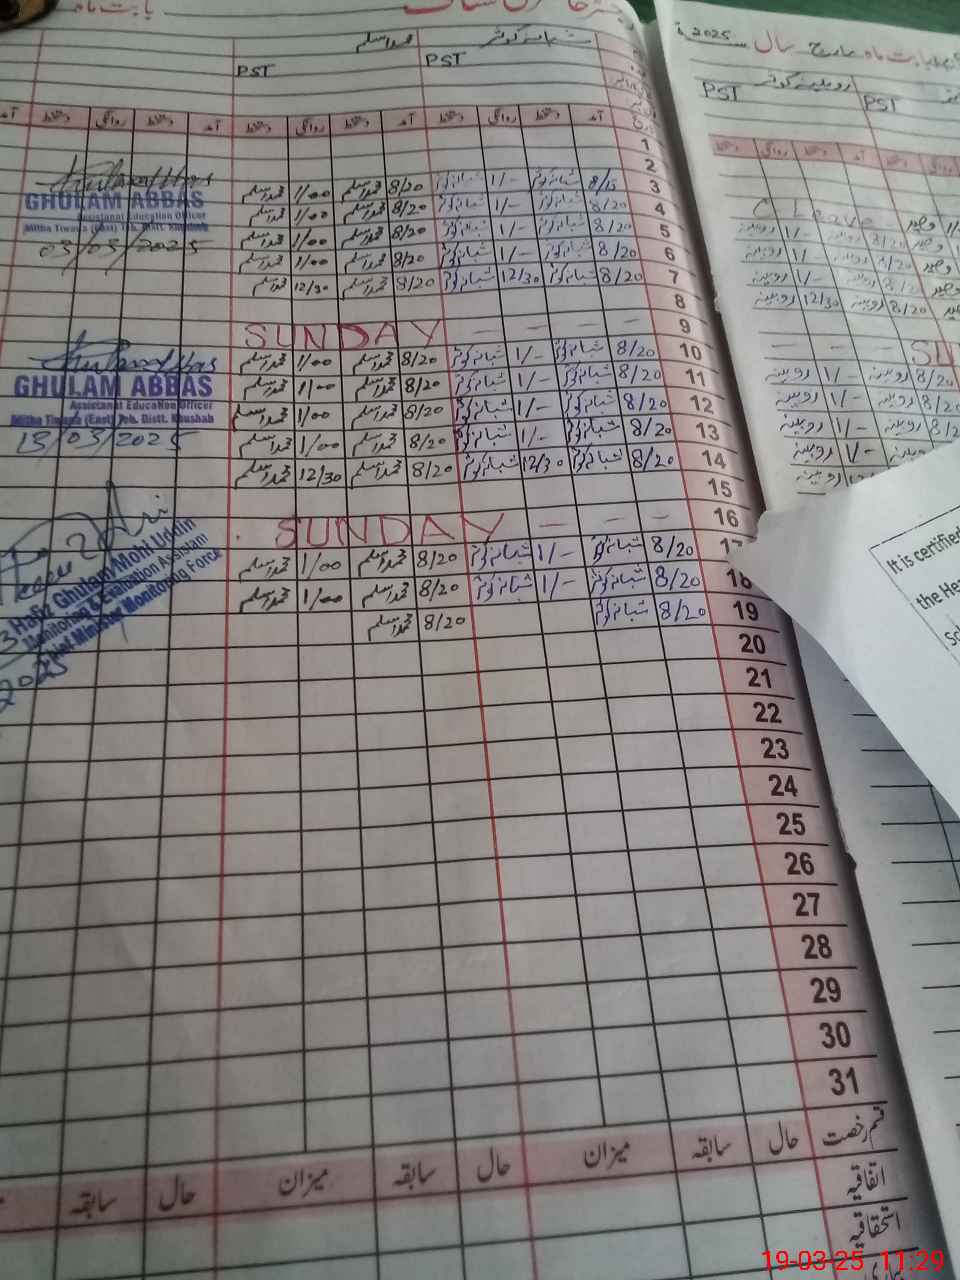 بابت ماہ
شبانہ کوثر محمد اسلم
PST PST
آمد دستخط روانگی دستخط آمد دستخط روانگی دستخط آمد دستخط روانگی دستخط آمد
1
2
3 8/15 شبانہ کوثر 1/- شبانہ کوثر 8/20 محمد اسلم 1/00 محمد اسلم
4 8/20 شبانہ کوثر 1/- شبانہ کوثر 8/20 محمد اسلم 1/00 محمد اسلم
5 8/20 شبانہ کوثر 1/- شبانہ کوثر 8/20 محمد اسلم 1/00 محمد اسلم
6 8/20 شبانہ کوثر 1/- شبانہ کوثر 8/20 محمد اسلم 1/00 محمد اسلم
7 8/20 شبانہ کوثر 12/30 شبانہ کوثر 8/20 محمد اسلم 12/30 محمد اسلم
8
9 SUNDAY – – – –
10 8/20 شبانہ کوثر 1/- شبانہ کوثر 8/20 محمد اسلم 1/00 محمد اسلم
11 8/20 شبانہ کوثر 1/- شبانہ کوثر 8/20 محمد اسلم 1/00 محمد اسلم
12 8/20 شبانہ کوثر 1/- شبانہ کوثر 8/20 محمد اسلم 1/00 محمد اسلم
13 8/20 شبانہ کوثر 1/- شبانہ کوثر 8/20 محمد اسلم 1/00 محمد اسلم
14 8/20 شبانہ کوثر 12/30 شبانہ کوثر 8/20 محمد اسلم 12/30 محمد اسلم
15
16 SUNDAY – – –
17 8/20 شبانہ کوثر 1/- شبانہ کوثر 8/20 محمد اسلم 1/00 محمد اسلم
18 8/20 شبانہ کوثر 1/- شبانہ کوثر 8/20 محمد اسلم 1/00 محمد اسلم
19 8/20 شبانہ کوثر 8/20 محمد اسلم
20
21
22
23
24
25
26
27
28
29
30
31
قسم رخصت حال سابقہ میزان حال سابقہ میزان حال سابقہ
اتفاقیہ
استحقاقیہ
GHULAM ABBAS
Assistanat Education Officer
Mitha Tiwana (East) Teh. Distt. Khushab
03/03/2025
GHULAM ABBAS
Assistanat Education Officer
Mitha Tiwana (East) Teh. Distt. Khushab
13/03/2025
Hafiz Ghulam Mohi Uddin
Monitoring & Evaluation Assistant
Chief Minister Monitoring Force
2025
بابت ماہ مارچ سال 2025
روبینہ کوثر
PST PST
دستخط روانگی دستخط آمد دستخط روانگی
C Leave
روبینہ 1/- روبینہ 8/20
روبینہ 1/- روبینہ 8/20
روبینہ 1/- روبینہ 8/20
روبینہ 12/30 روبینہ 8/20
– – – SU
روبینہ 1/- روبینہ 8/20
روبینہ 1/- روبینہ 8/20
روبینہ 1/- روبینہ 8/2
روبینہ 1/-
روبینہ
It is certified
the Hea
Sc
19-03-25 11:29